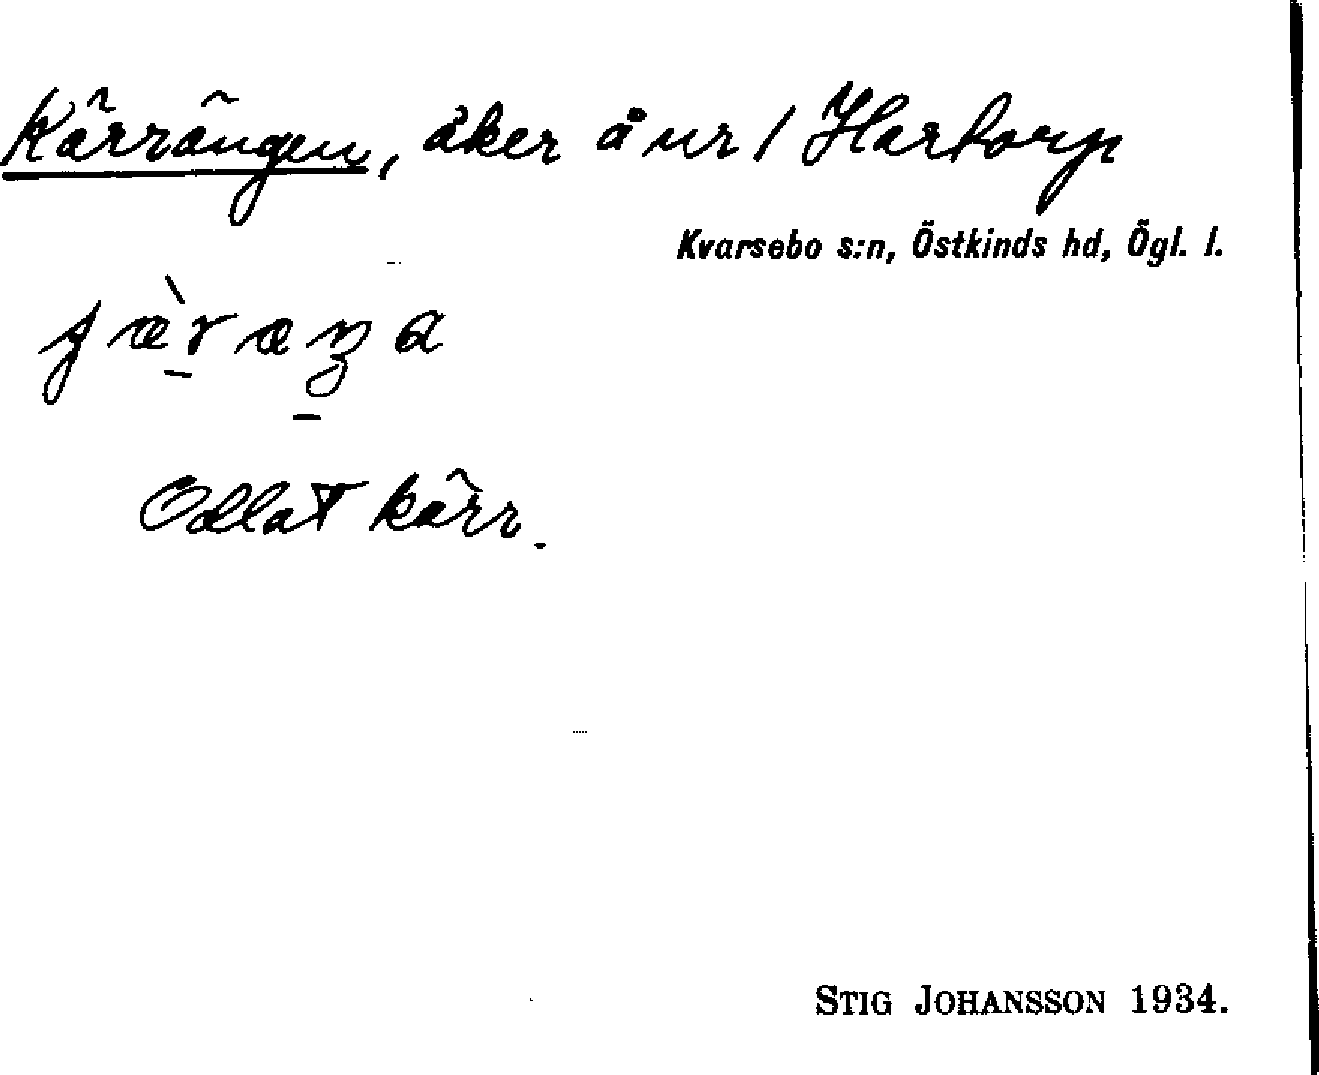 Kärrängen, åker å nr 1 Hartorp
Kvarsebo s:n, Östkinds hd, Ögl. l.
Odlat kärr.
STIG JOHANSSON 1934.